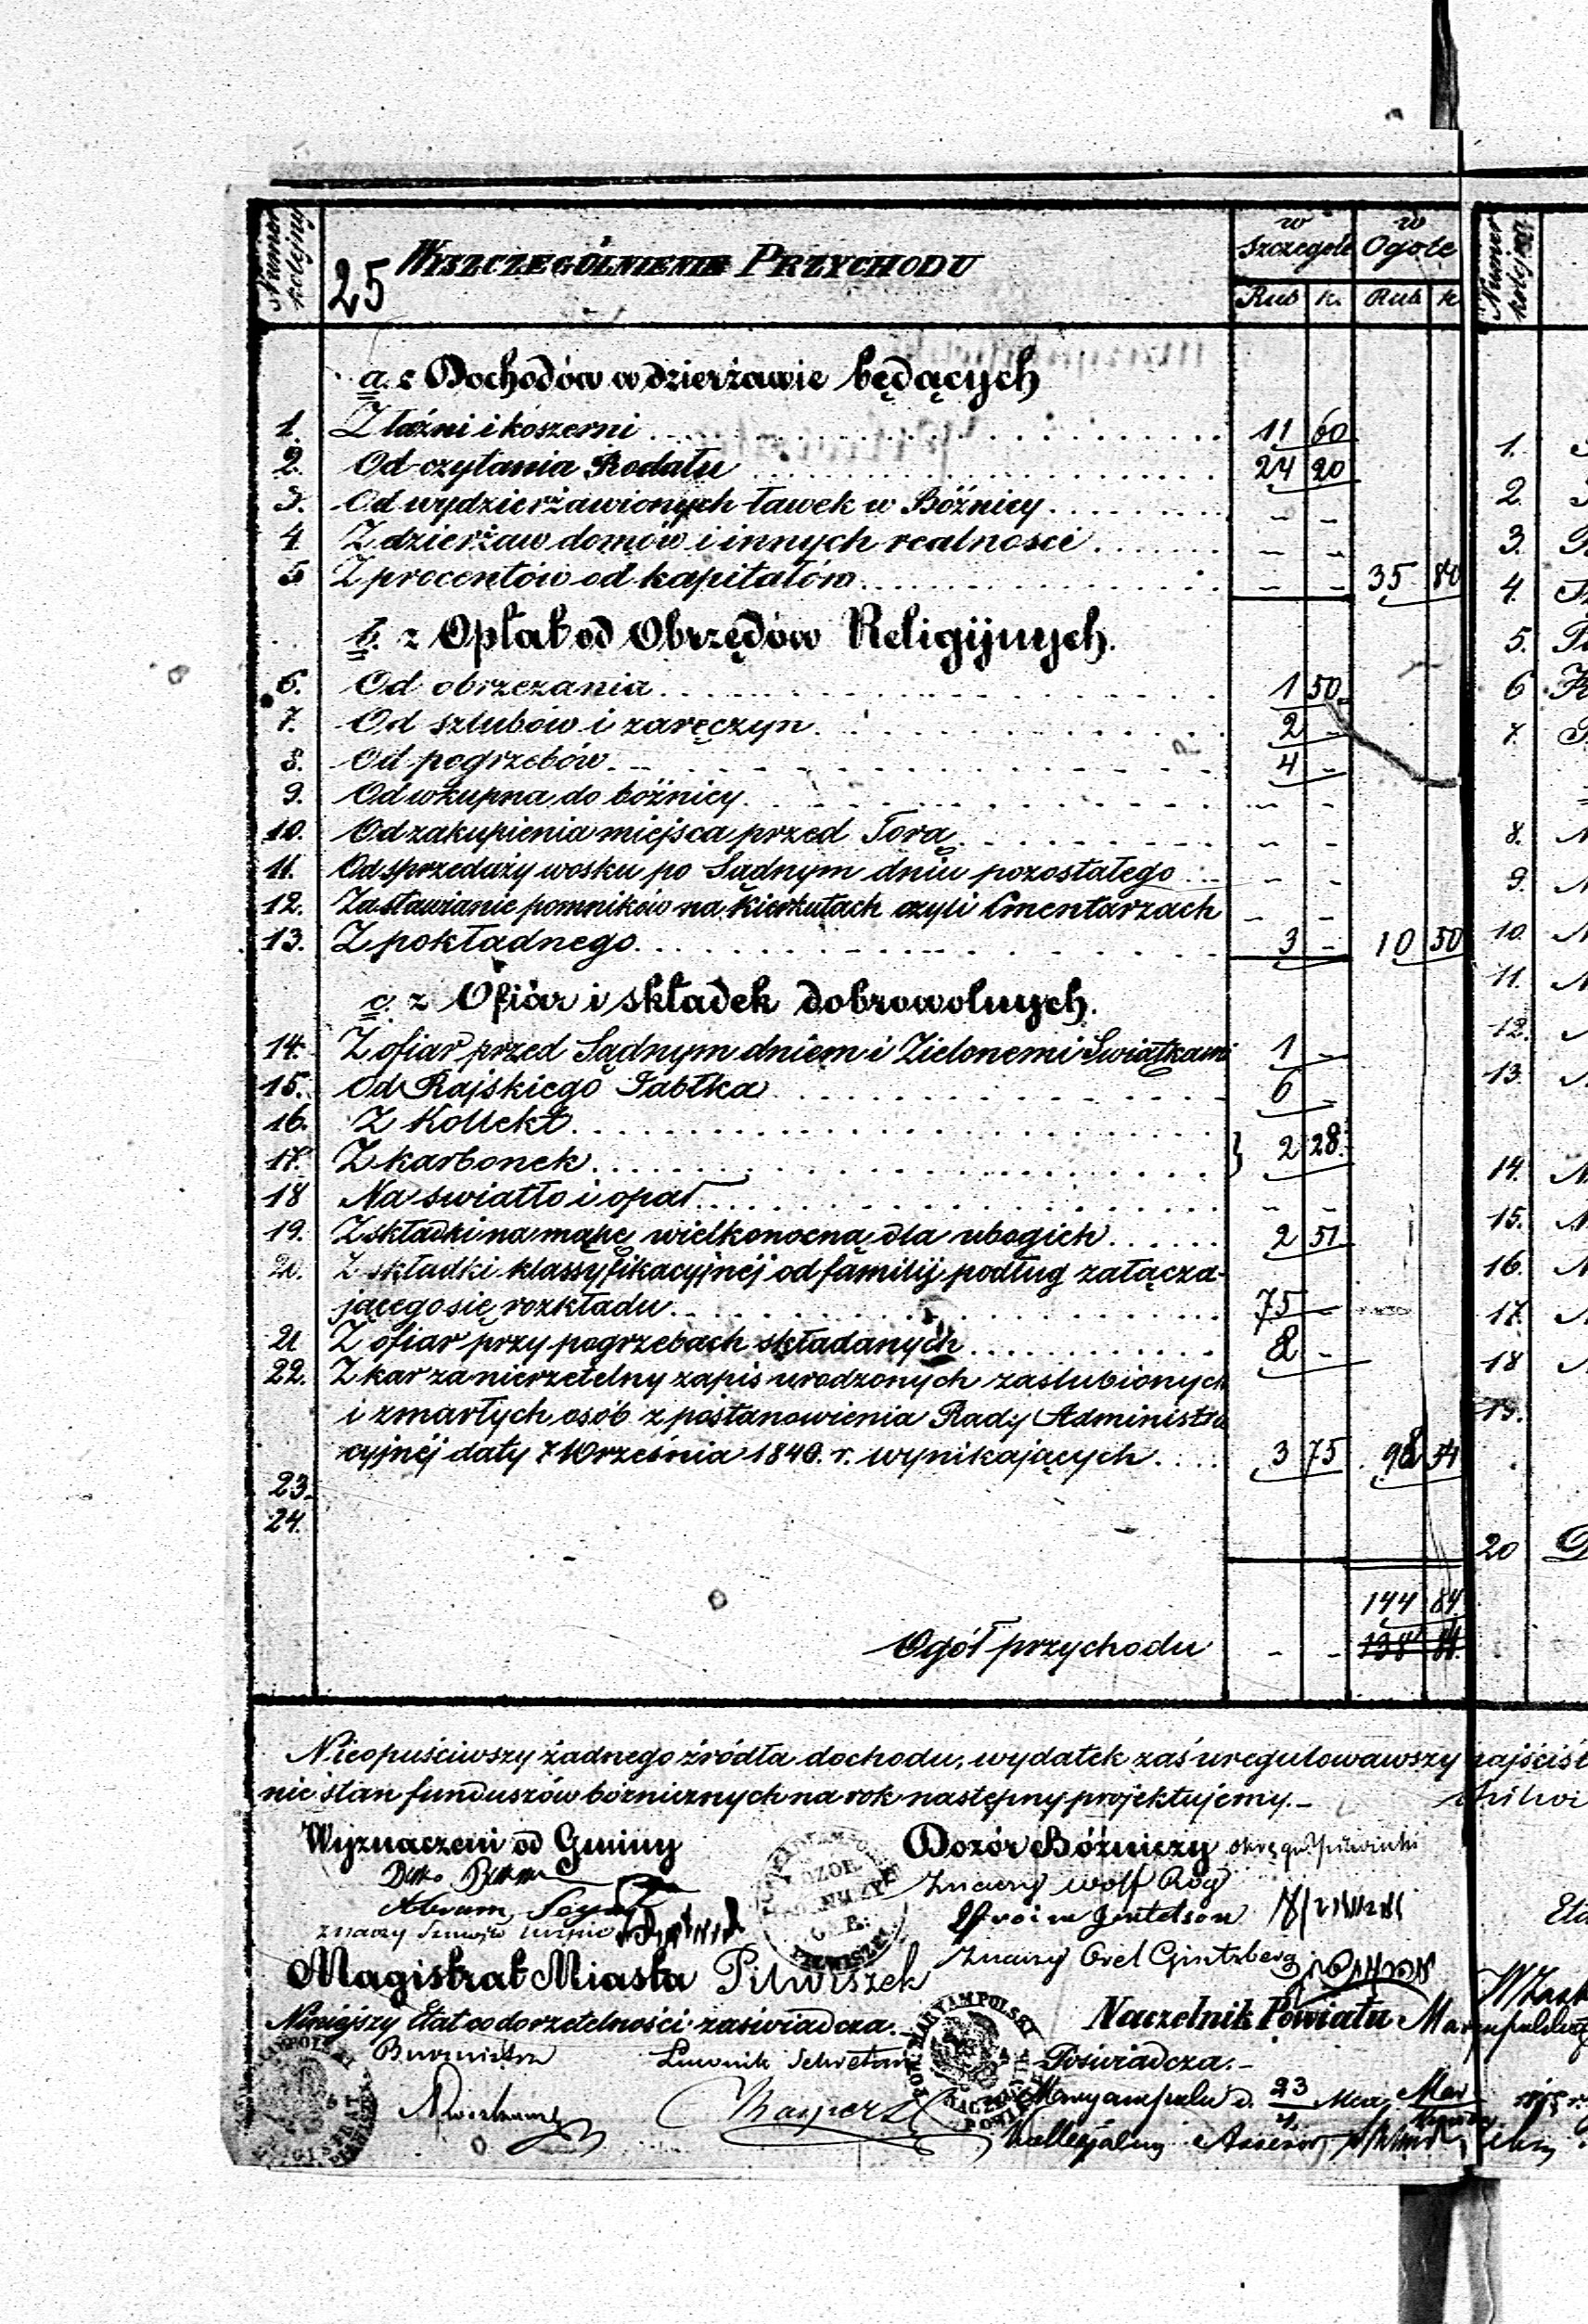 Numer kolejny
25 WYSZCZEGÓLNIENIE PRZYCHODU
w Szczególe
w Ogóle
Rub k. Rub k
Numer kolejny
a. z Dochodów w dzierżawie będących
1. Z łaźni i koszerni 11 60
2. Od czytania Rodału 24 20
3. Od wydzierżawionych ławek w Bóżnicy - -
4. Z dzierżaw domów i innych realnosci - -
5 Z procentów od kapitałów - - 35 80
b. z Opłat od Obrzędów Religijnych.
6. Od obrzezania 1 50
7. Od szlubów i zaręczyn 2 -
8. Od pogrzebów 4 -
9. Od wkupna do bóżnicy - -
10. Od zakupienia miejsca przed Torą - -
11. Od sprzedaży wosku po Sądnym dniu pozostałego - -
12. Za stawianie pomników na Kierkutach czyli Cmentarzach - -
13. Z pokładnego 3 - 10 50
c. z Ofiar i składek dobrowolnych.
14. Z ofiar przed Sądnym dniem i Zielonemi Swiątkami 1 -
15. Od Rajskiego Jabłka 6 -
16. Z Kollekt
17. Z karbonek } 2 28
18 Na swiatło i opał - -
19. Z składki na mąkę wielkonocną dla ubogich 2 51
20. Z składki klassyfikacyjnéj od familij podług załącza-
jącego się rozkładu 75 -
21 Z ofiar przy pogrzebach składanych 8 -
22. Z kar za nierzetelny zapis urodzonych zaslubionych
i zmarłych osób z postanowienia Rady Administra
cyjnéj daty 7 Września 1840. r. wynikających 3 75 98 54
23.
24.
144 84
Ogół przychodu - - 138 84
Nieopuściwszy żadnego źródła dochodu, wydatek zaś uregulowawszy najściśl
nie stan funduszów bóżnicznych na rok następny projektujemy.
Wyznaczeni od Gminy
Dozór Bóżniczy okręgu
Znaczy Wolf Rog
Abram
Efroim Gintelson
Znaczy Orel Gintzberg
Magistrat Miasta Pilwiszek
Niniejszy Etat co do rzetelności zaświadcza.
Naczelnik Powiatu Maryampolskiego
Burmistrz
Ławnik Sekretarz
Poświadcza.
Maryampolu d. 23
Kollegjalny Assesor
1.
2
3.
4.
5.
6
7.
8.
9.
10.
11.
12.
13.
14.
15.
16.
17.
18
19.
20